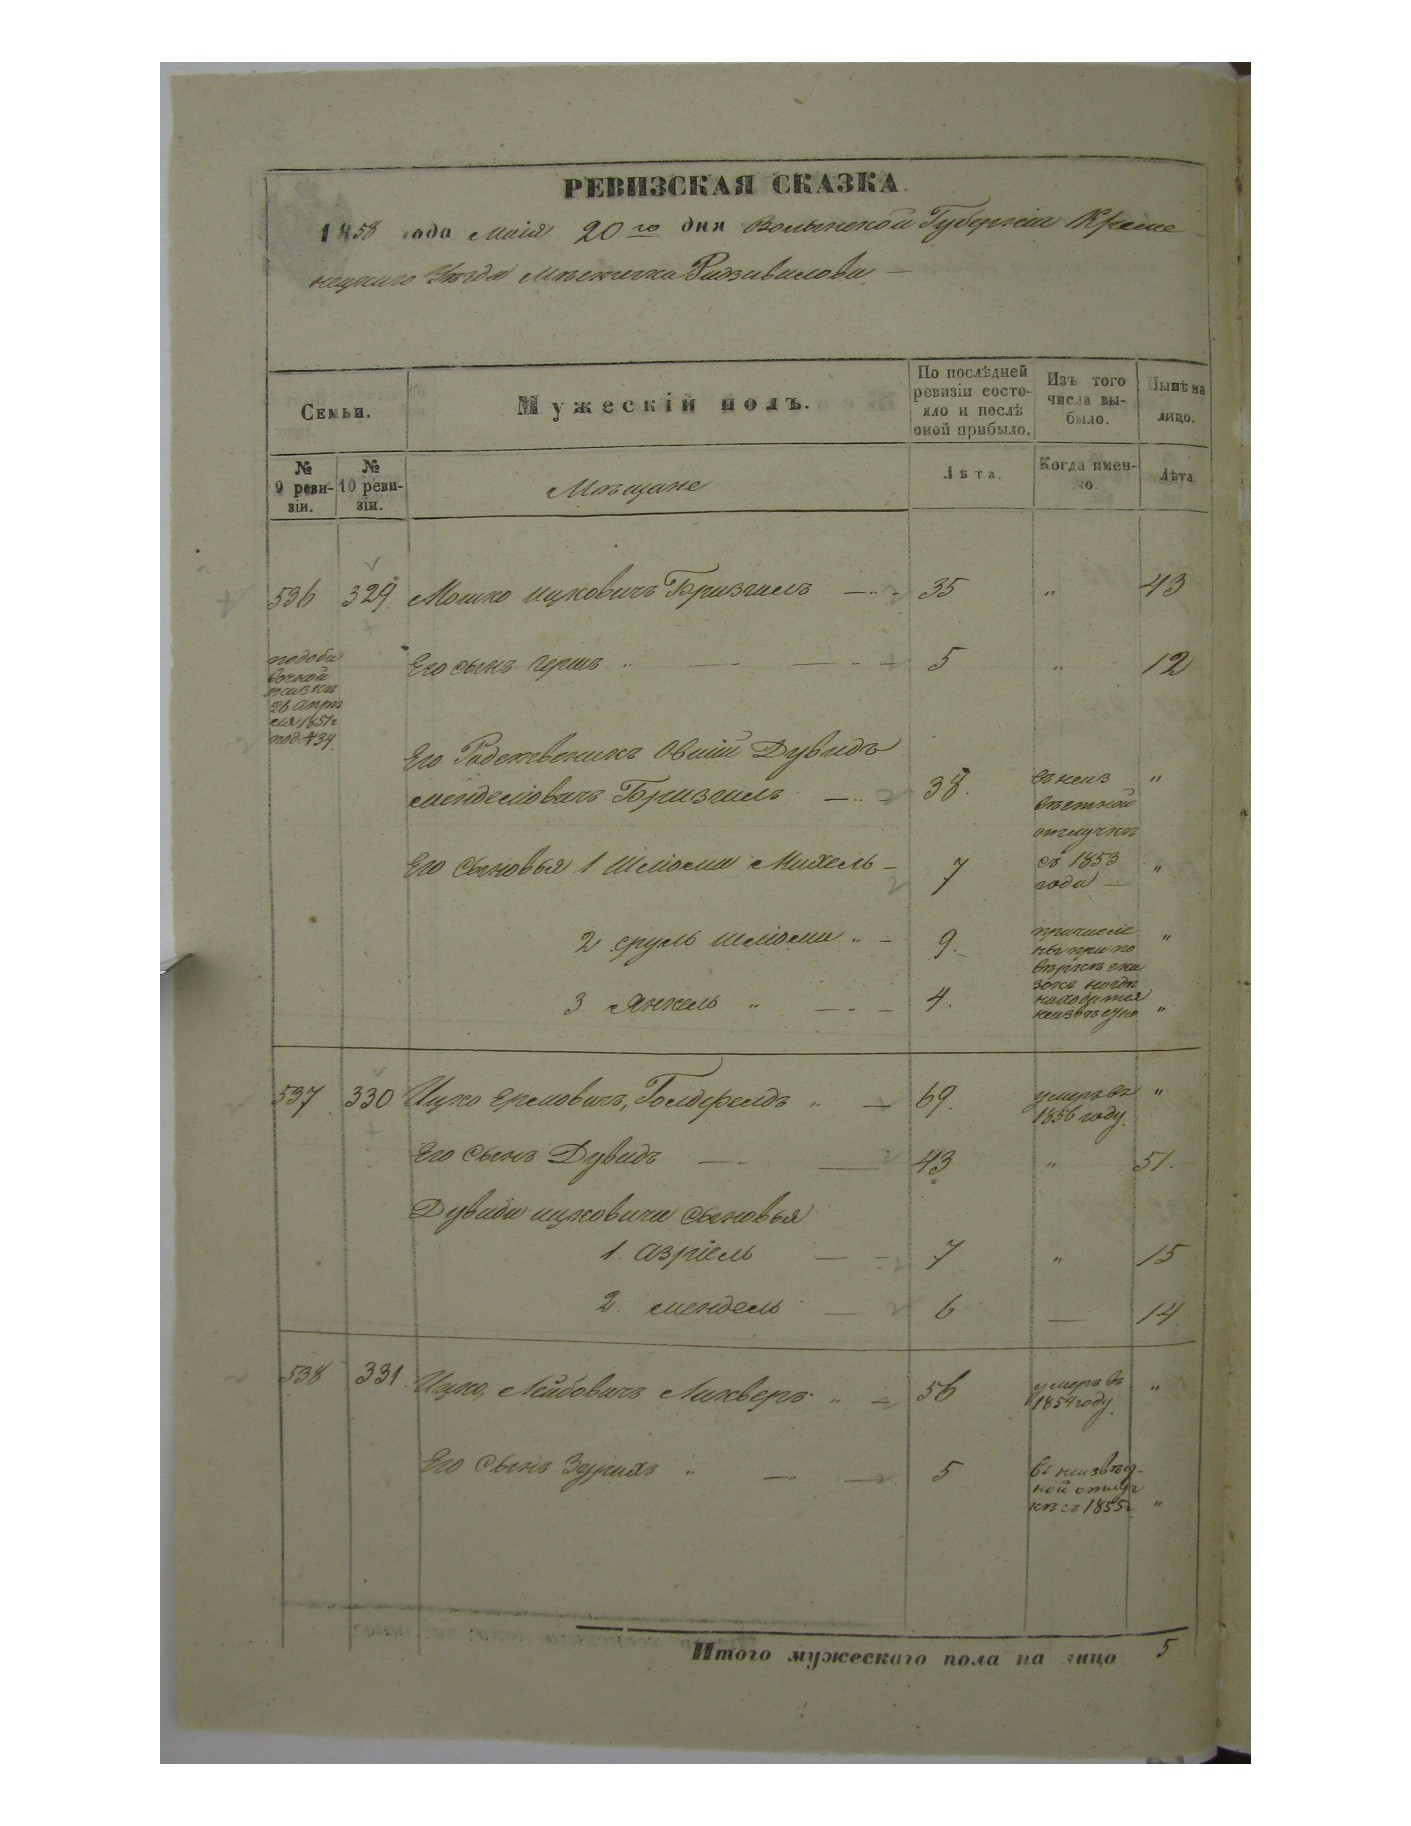 РЕВИЗСКАЯ СКАЗКА
1858 года Маія 20го дня Волынской Губерніи Креме
нецкаго Уезда Местечка Радзивилова
Семьи.
Мужескій полъ.
По послѣдней ревизіи состо-
яло и послѣ оной прибыло.
Изъ того числа вы-
было.
Нынѣ на лицо.
№ 9 реви-
зіи.
№ 10 реви-
зіи.
Мѣщане
Лѣта.
Когда имен-
но.
Лѣта
536 329. Мошко Ицковичъ Бризгилъ 35 " 43
Его сынъ Герш " 5 " 12
26 Апре
ля 1851г
под. №34
Его Родственникъ Овшій Дувидъ
Менделіовичъ Бризгилъ 38. въ неиз "
вѣстной
отлучке
Его сыновья 1 Шліома Михель 7 съ 1853 "
года
2 Сруль Шліома " 9. причисле "
ны при по
верке ска
зокъ когда
3 Янкель " 4. находится
неизвѣстно "
537 330 Ицко Ермовичъ, Голдфелдъ " 69. умеръ въ "
1856 году.
Его Сынъ Дувидъ 43 " 51.
Дувида Ицковича Сыновья
1. Азріель 7 " 15
2. Мендель 6 14.
538 331. Ицко, Лейбовичъ Ликверъ " 56 умеръ въ "
1854 году.
Его Сынъ " 5 въ неизвѣст-
ной отлуч
ке съ 1855г. "
Итого мужескаго пола на лицо 5